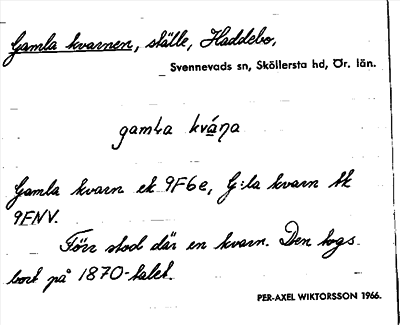 Gamla kvarnen, ställe, Haddebo,
Svennevads sn, Sköllersta hd, Ör. län.
gamLa kvá̱ṇa
Gamla kvarn ek 9F6e, G:la kvarn tk
9FNV.
Förr stod där en kvarn. Den togs
bort på 1870-talet.
PER-AXEL WIKTORSSON 1966.